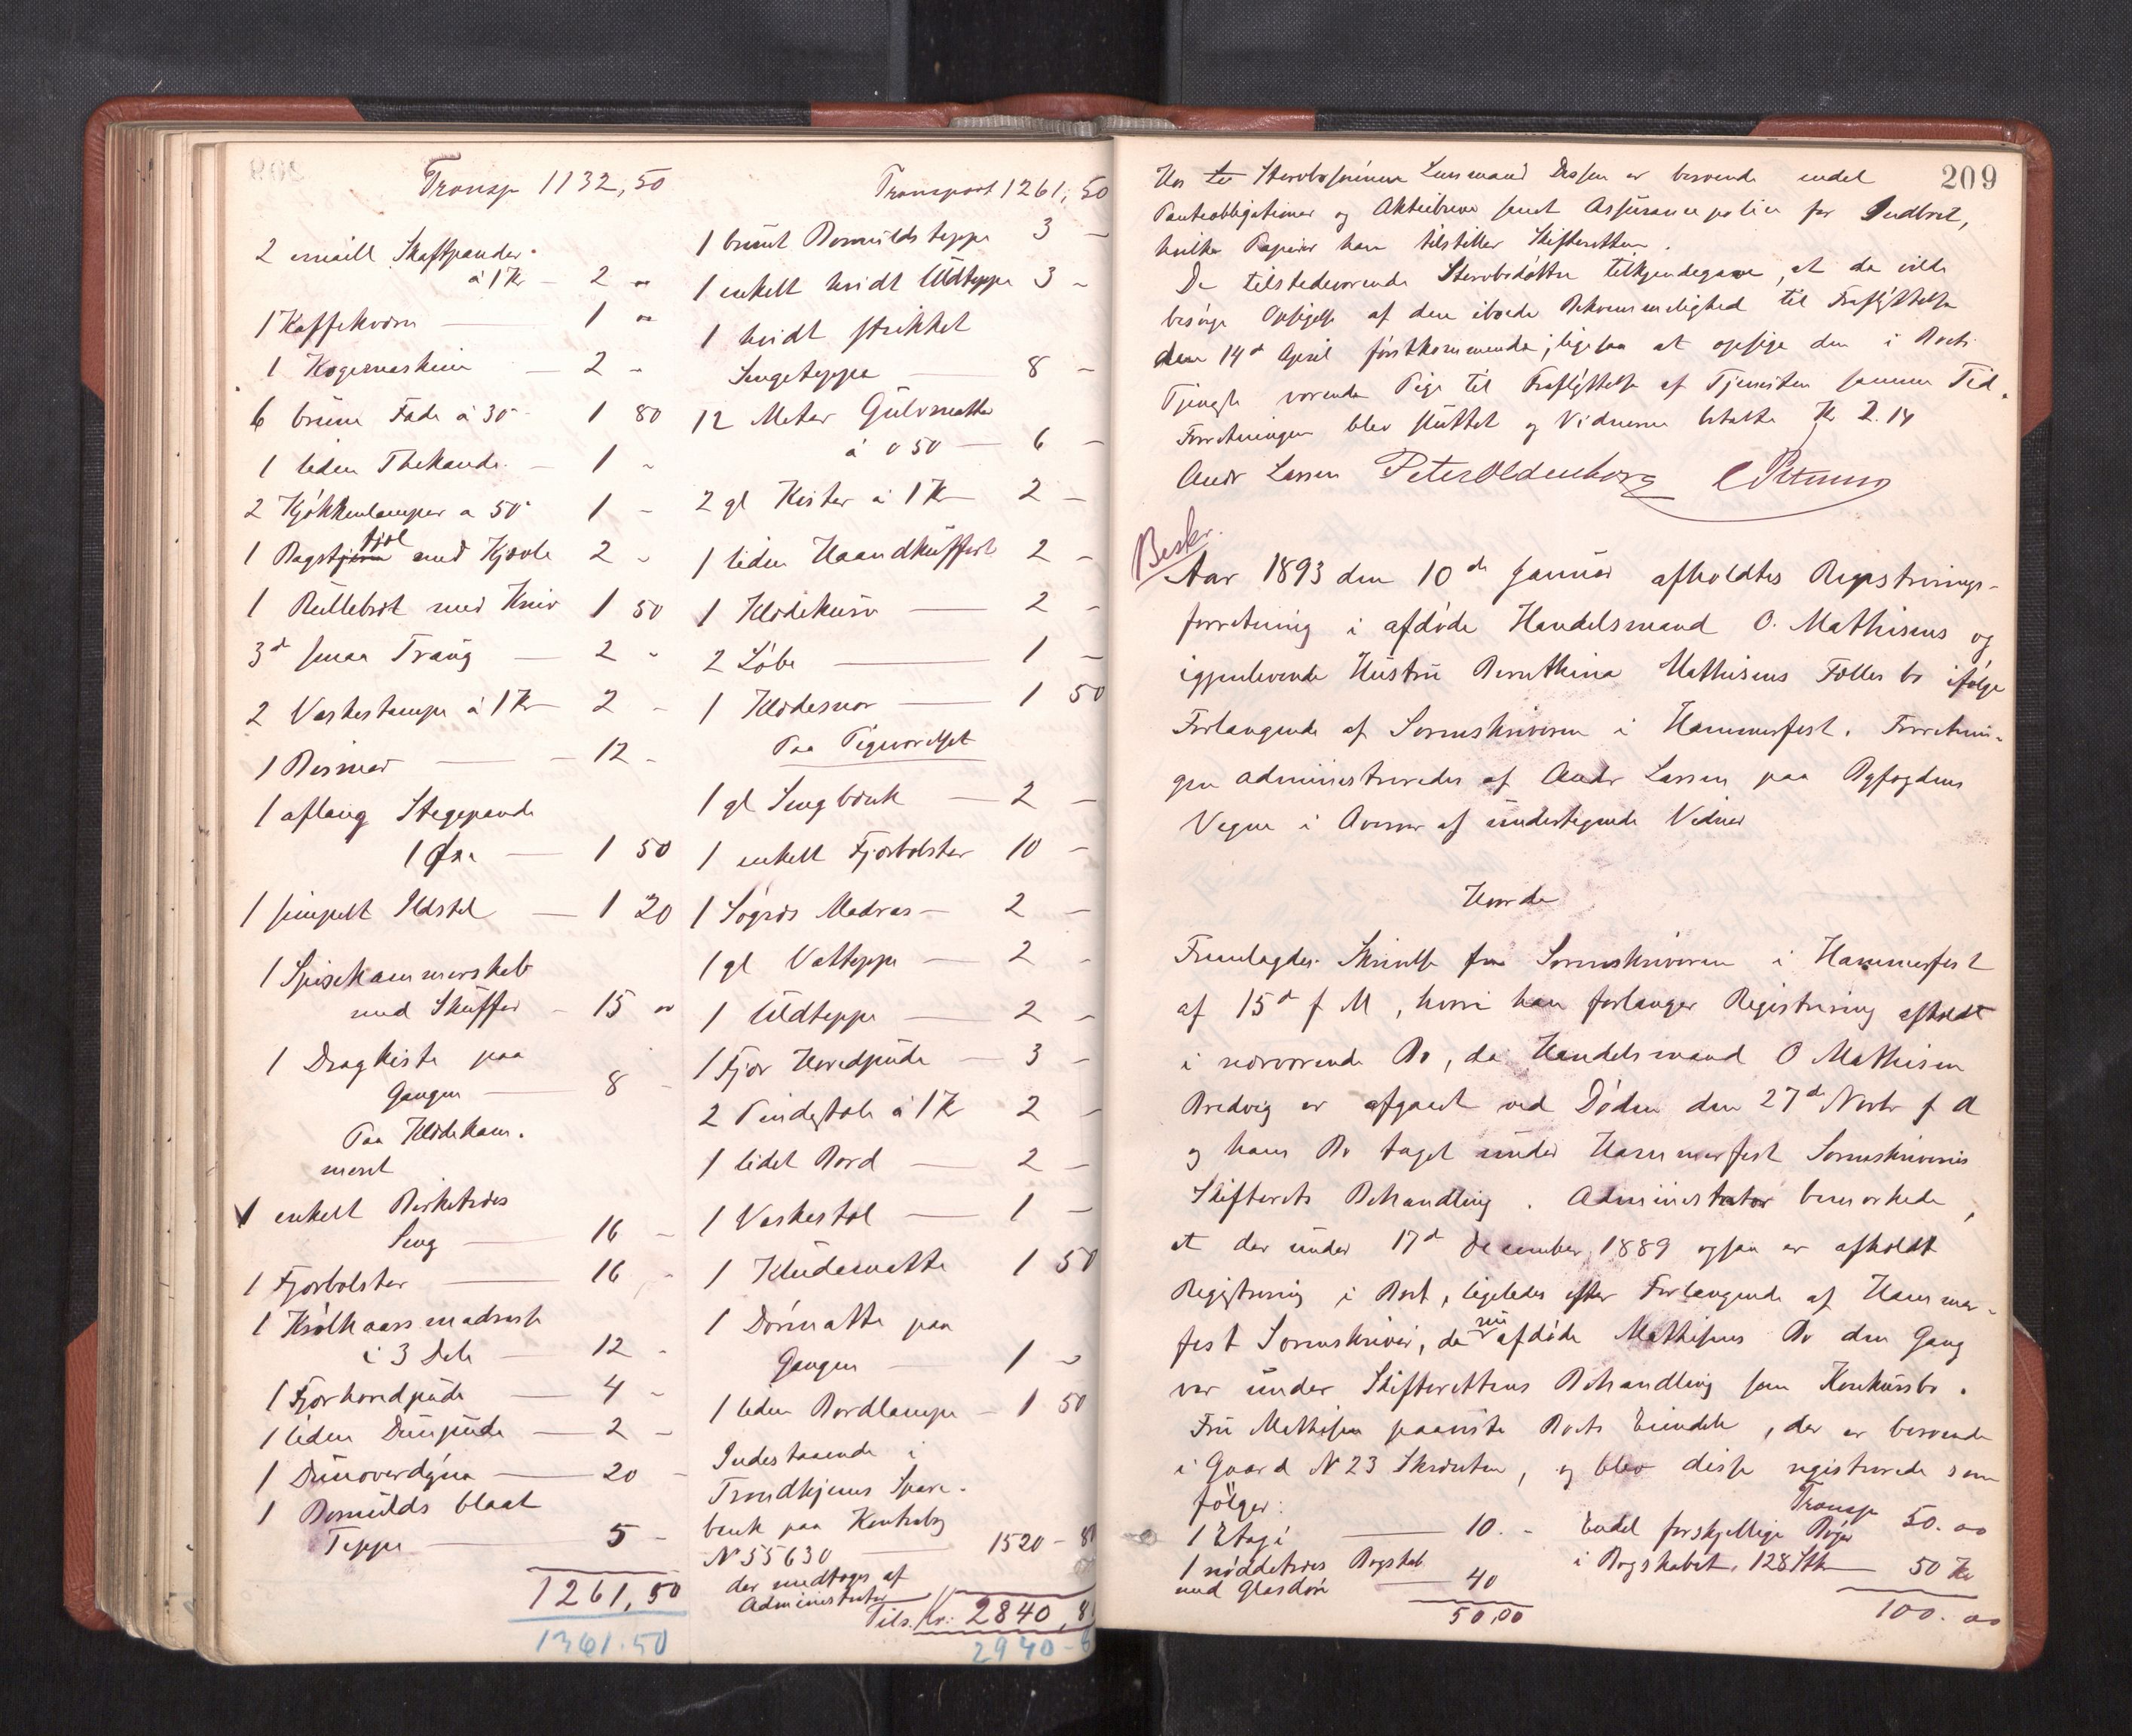 Transp 1132,50
2 emaill Skaftpander
à 1 Kr — 2 "
1 Kaffekværn — 1 "
1 Kogemaskine — 2 "
6 brune Fade à 30 1 80
1 liden Thekande — 1 "
2 Kjøkkenlamper a 50 1 "
1 Bagstfjøl med Kjævle 2 "
1 Rullebræt med Kniv 1 50
3d smaa Traug — 2 "
2 Vaskestampe à 1 Kr 2 "
1 Bismer — 12 "
1 aflang Stegepande
1 Øse — 1 50
1 simpelt Ildstel — 1 20
1 Spisekammerskab
med Skuffer — 15 "
1 Dragkiste paa
Gangen — 8 "
Paa Klædekam-
meret
1 enkelt Birketræes
Seng — 16 "
1 Fjærbolster — 16 "
1 Krølhaarsmadrasse
i 3 Dele — 12 "
1 Fjærhovedpude — 4 "
1 liden Dunpude — 2 "
1 Dunoverdyna — 20 "
1 Bomulds blaat
Teppe — 5 "
1261,50
1361.50
Transport 1261,50
1 brunt Bomuldsteppe 3 "
1 enkelt hvidt Uldteppe 3 "
1 hvidt strikket
Sengeteppe — 8 "
12 Meter Gulvmatte
à 0 50 — 6 "
2 gl Kister à 1 Kr 2 "
1 liden Haandkuffert 2 "
1 Klædekurv — 2 "
2 Løbe — 1 "
1 Klædesnor — 1 50
Paa Pigeværelset
1 gl Sengbænk — 2 "
1 enkelt Fjærbolster 10 "
1 Søgræs Madras — 2 "
1 gl Vatteppe — 2 "
1 Uldteppe — 2 "
1 Fjær Hovedpude — 3 "
2 Pindestole à 1 Kr 2 "
1 lidet Bord — 2 "
1 Vaskestol — 1 "
1 Kludematte 1 50
1 Dørmatte paa
Gangen — 1 "
1 liden Bordlampe — 1 50
Indestaaende i
Trondhjems Spare-
bank paa Kontrabog
N 55630 — 1520 - 8
der modtoges af
Administrator
Tils. Kr: 2840,8
2940 - 8
209
Hos Sterboforeninen Lensmand er beroende endel
Panteobligationer og Aktiebreve samt Assurancepolice for Indboet,
hvilke Papirer han tilstiller Skifteretten.
De tilstedeværende Sterbodøttre tilkjendegave, at de vilde
besørge Opsigelse af den iboede Bekvemmelighed til Fraflyttelse
den 14de April førstkommende, ligesaa at opsige den i Boets
Tjeneste værende Pige til Fraflyttelse af Tjenesten samme Tid.
Forretningen blev sluttet og Vidnerne betalte Kr 2.14
Andr Larsen Peter Oldenborg
Beskr.
Aar 1893 den 10de Januar afholdtes Registrerings-
forretning i afdøde Handelsmand O. Mathisens og
igjenlevende Hustru Bernthina Mathisens Fælles bo ifølge
Forlangende af Sorenskriveren i Hammerfest. Forretnin-
gen administreredes af Andr Larsen paa Byfogdens
Vegne i Overvær af undertegnede Vidner
Hvorda
Fremlagdes Skrivelse fra Sorenskriveren i Hammerfest
af 15d f M, hvori han forlanger Registrering afholdt
i nærværende Bo, da Handelsmand O Mathisen
Bredvig er afgaaet ved Døden den 27de Novbr f A
og hans Bo taget under Hammerfest Sorenskriveries
Skifterets Behandling. Administrator bemærkede,
at der under 17d December 1889 ogsaa er afholdt
Registrering i Boet, ligeledes efter Forlangende af Hammer-
fest Sorenskriver, da nu afdøde Mathisens Bo den Gang
var under Skifterettens Behandling som Konkursbo.
Fru Mathisen paaviste Boets Eiendele, der er beroende
i Gaard N 23 Skrænten, og blev disse registrerede som
følger:
1 Etagé — 10. -
1 nøddetræes Bogskab
med Glasdøre — 40
50,00
Transp 50.00
Endel forskjellige Bøger
i Bogskabet, 128 Stk — 50 Kr
100.00